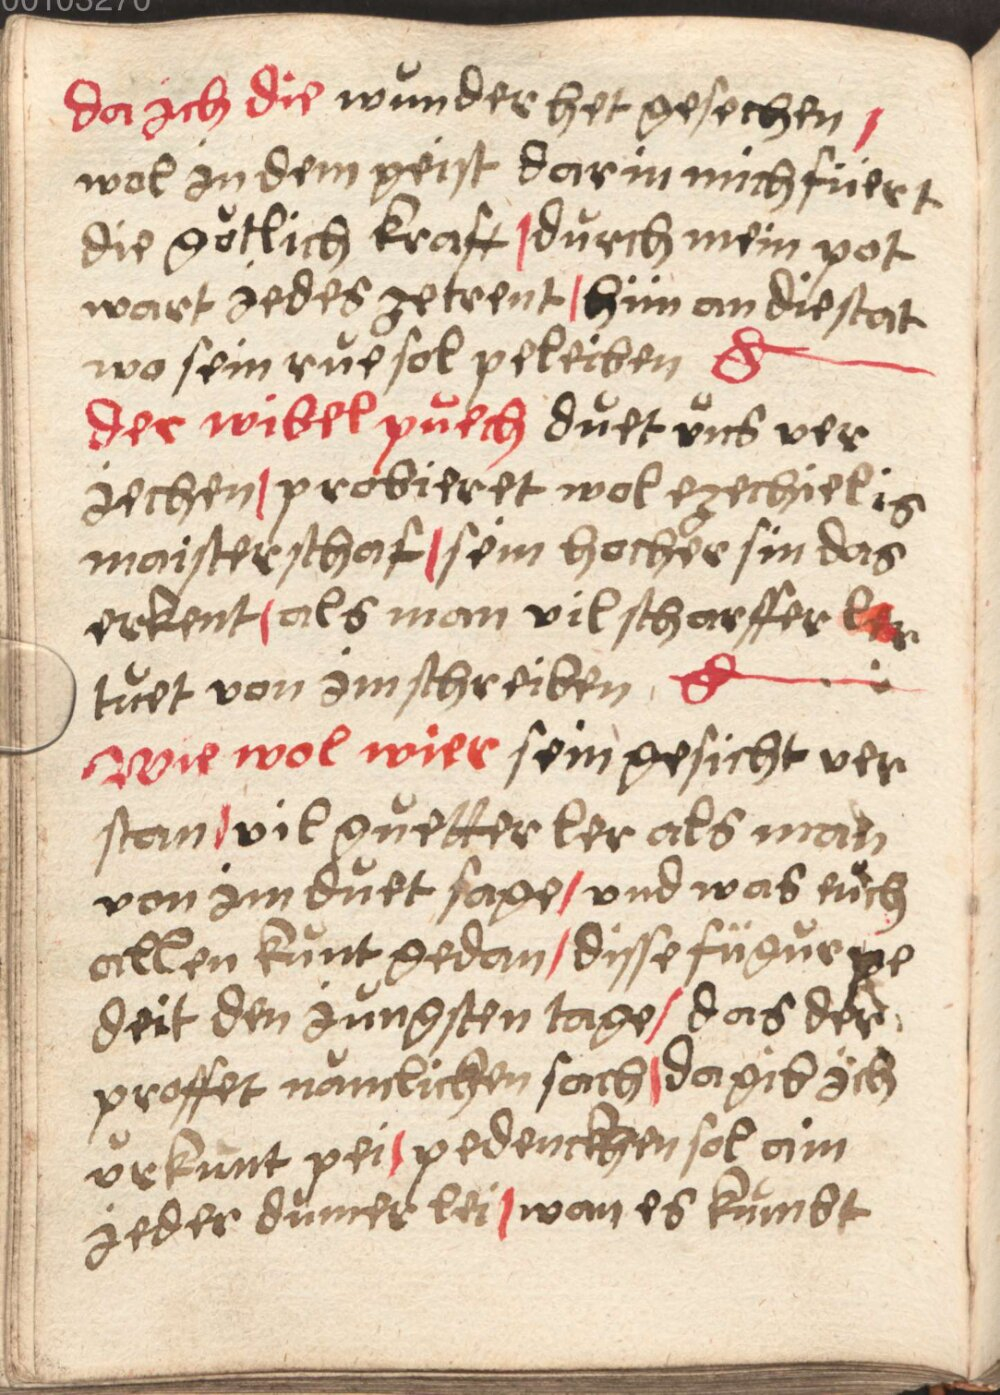 00103270
da jch die wunder het gesechen /
wol jn dem geist darin mich füert
die götlich kraft / durch mein pot
wart jedes zetrent / hiin an die stat
wo sein rue sol peleiben
der wibel puech duet vns ver
jechen / probieret wol ezechielis
maisterschaf / sein hocher sin das
erkent / als man vil scharffer ler
tuet von jm schreiben
Wie wol wier sein gesicht ver
stan / vil guetter ler als man
von jm duet sage / vnd was euch
allen kunt gedan / disse fügur pe
deit den jungsten tage / das der
proffet namlicken sach / da gib jch
vrkunt pei / pedenckhen sol ain
jeder dumer lei / wan es kumbt